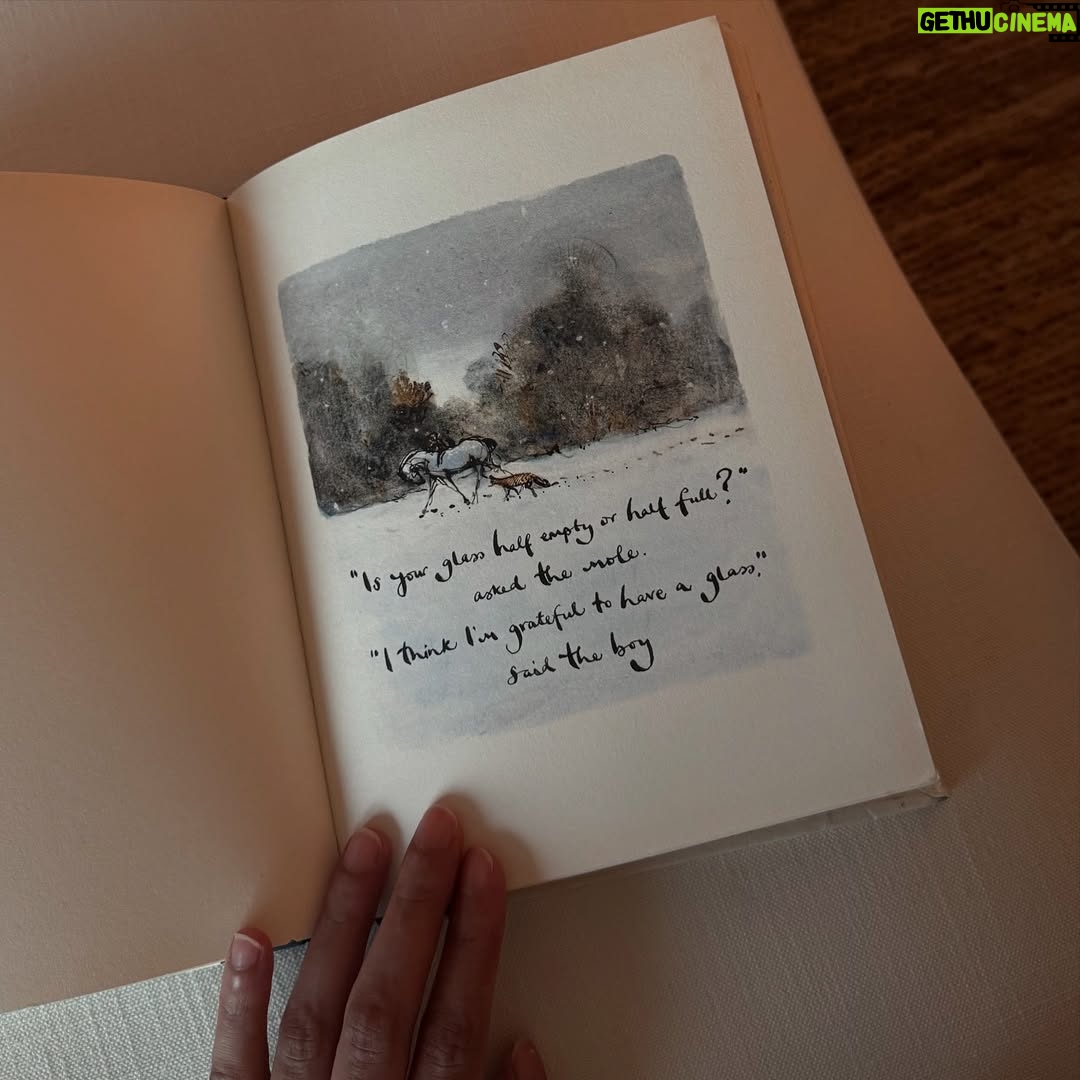 GETHUCINEMA
"Is your glass half empty or half full?"
asked the mole.
"I think I'm grateful to have a glass."
said the boy